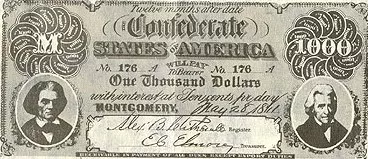 Twelve months after date
M
Confederate
1000
STATES OF AMERICA
WILL PAY
No. 176 A To Bearer No 176 A
One Thousand Dollars
with interest at Ten cents per day
MONTGOMERY, May 28, 1861
Register
E C Elmore Treasurer
RECEIVABLE IN PAYMENT OF ALL DUES EXCEPT EXPORT DUTIES